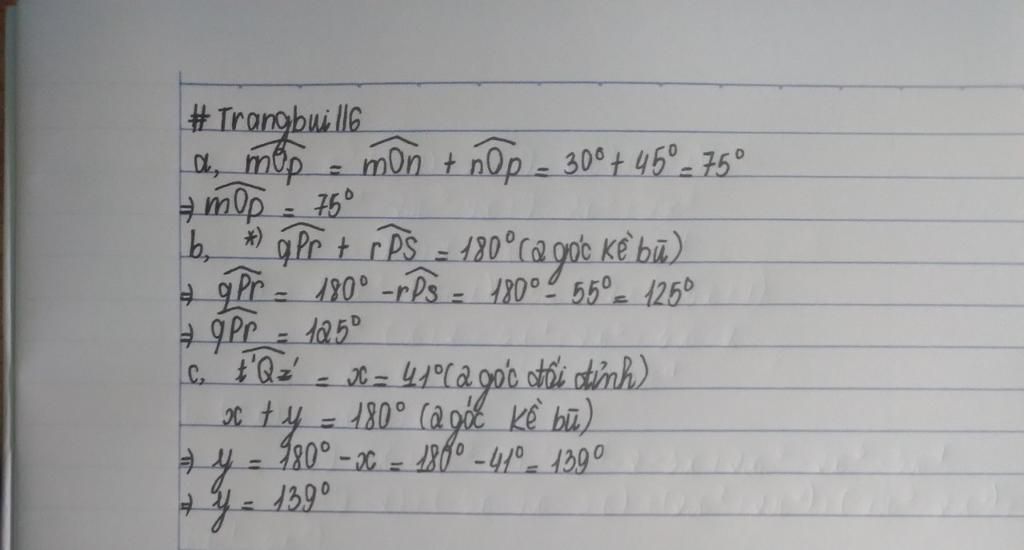 # Trangbui116
a, mOp = mOn + nOp = 30° + 45° = 75°
⇒ mOp = 75°
b, *) qPr + rPS = 180° (2 góc kề bù)
⇒ qPr = 180° - rPs = 180° - 55° = 125°
⇒ qPr = 125°
c, t'Qz' = x = 41° (2 góc đối đỉnh)
x + y = 180° (2 góc kề bù)
⇒ y = 180° - x = 180° - 41° = 139°
⇒ y = 139°